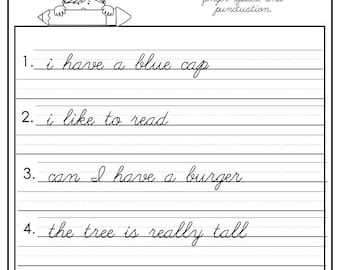 finger spaces, and
punctuation.
1. i have a blue cap
2. i like to read
3. can I have a burger
4. the tree is really tall